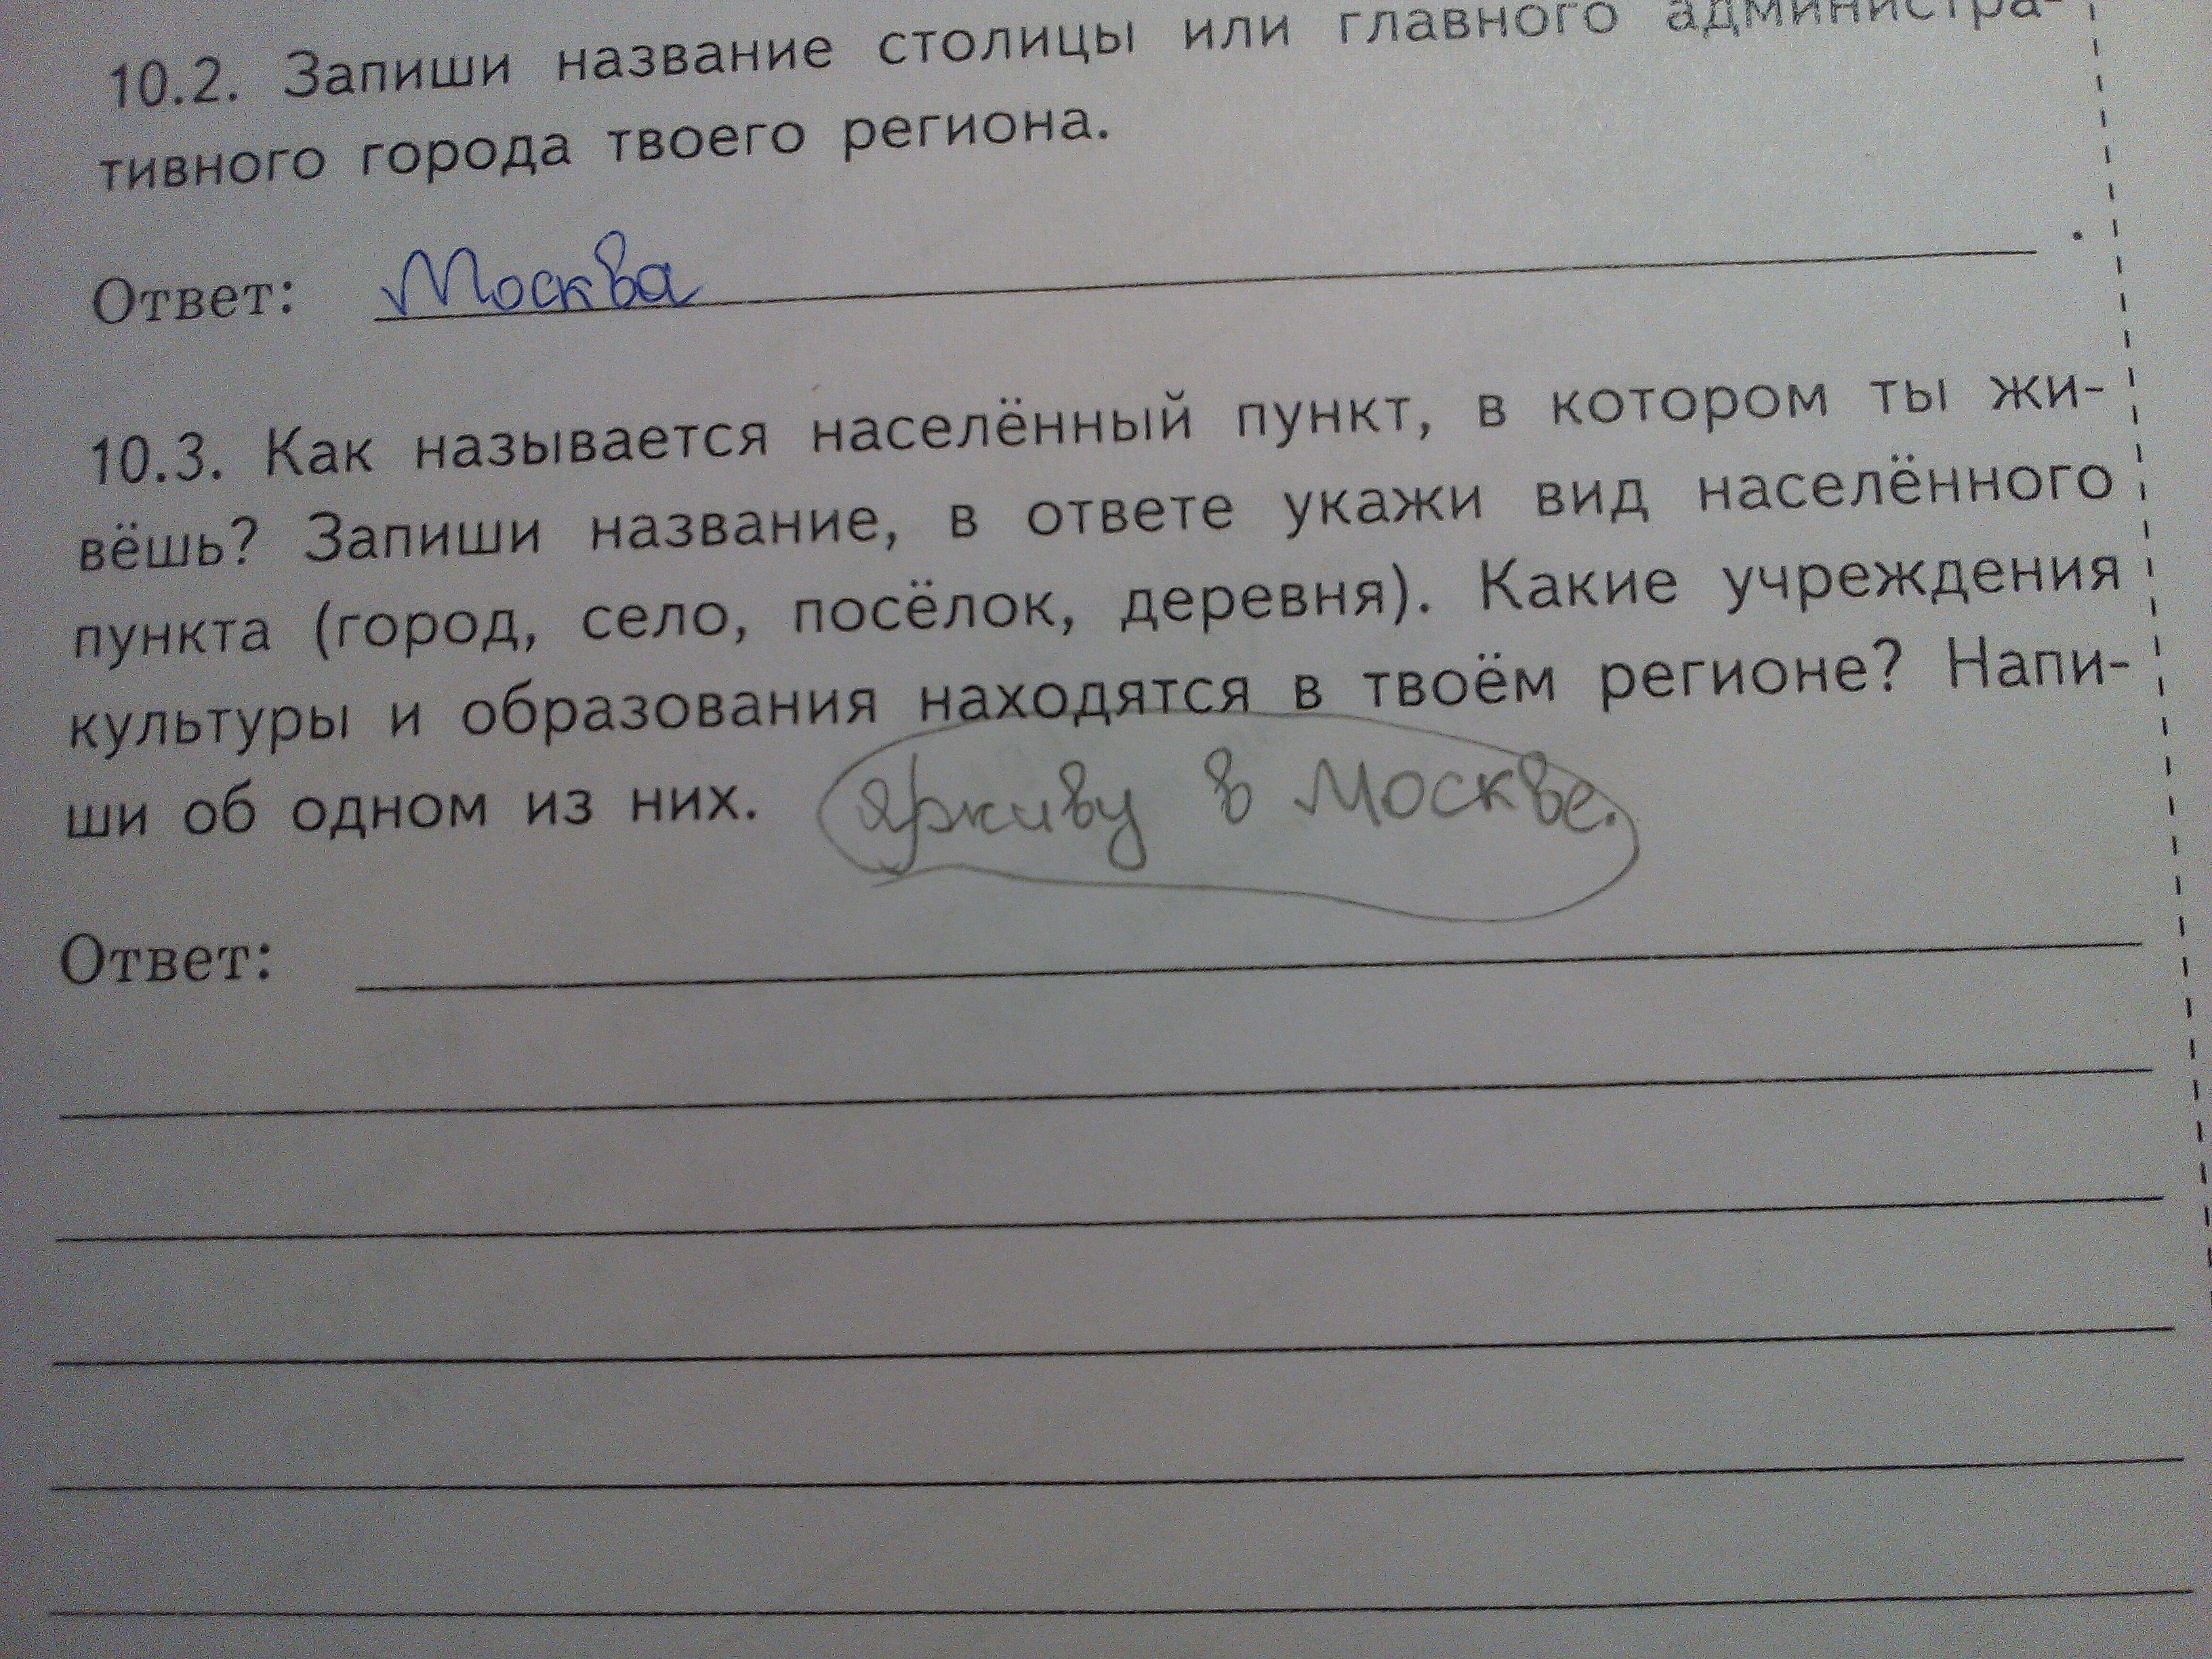 10.2. Запиши название столицы или главного администра-
тивного города твоего региона.
Ответ: Москва .
10.3. Как называется населённый пункт, в котором ты жи-
вёшь? Запиши название, в ответе укажи вид населённого
пункта (город, село, посёлок, деревня). Какие учреждения
культуры и образования находятся в твоём регионе? Напи-
ши об одном из них. Я живу в Москве.
Ответ: